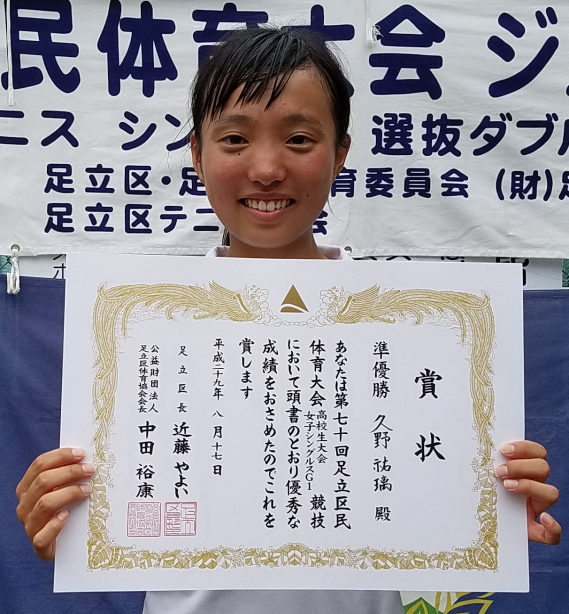 民体育大会 ジ
ニス シン
選抜ダブル
足立区・足
育委員会 (財)足
足立区テニ
会
賞状
準優勝 久野祐璃 殿
あなたは第七十回足立区民
体育大会 高校生大会 女子シングルスG1 競技
において頭書のとおり優秀な
成績をおさめたのでこれを
賞します
平成二十九年 八月十七日
足立区長 近藤やよい
公益財団法人
足立区体育協会会長 中田裕康